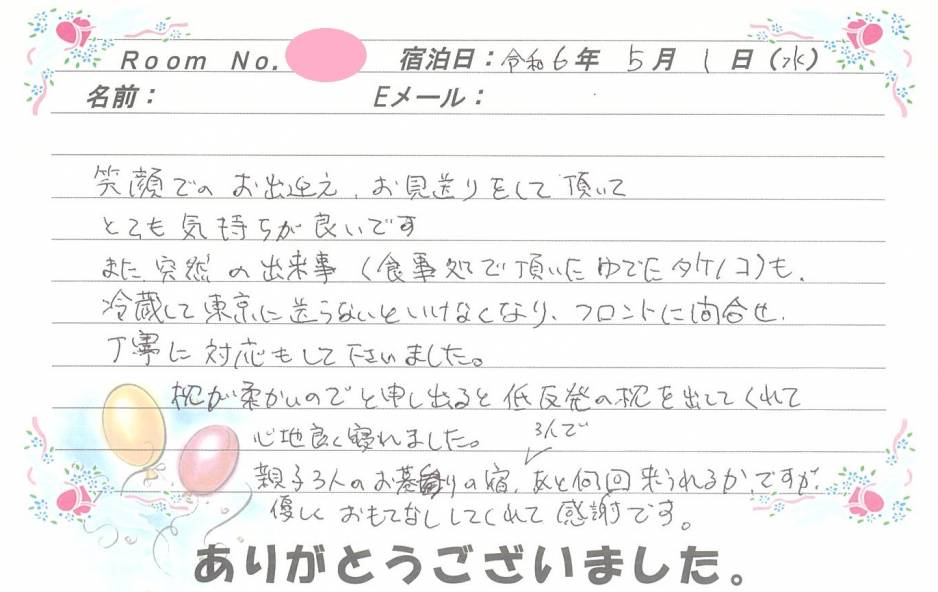 Room No. 宿泊日：令和6年 5月 1日（水）
名前： Eメール：
笑顔でのお出迎え、お見送りをして頂いて
とても気持ちが良いです
また、突然の出来事（食事処で頂いたゆでたタケノコ）も、
冷蔵して東京に送らないといけなくなり、フロントに問合せ、
丁寧に対応もして下さいました。
枕が柔かいのでと申し出ると低反発の枕を出してくれて
心地良く寝れました。
3人で
親子3人のお墓参りの宿、あと何回来られるか、ですが、
優しくおもてなししてくれて感謝です。
ありがとうございました。